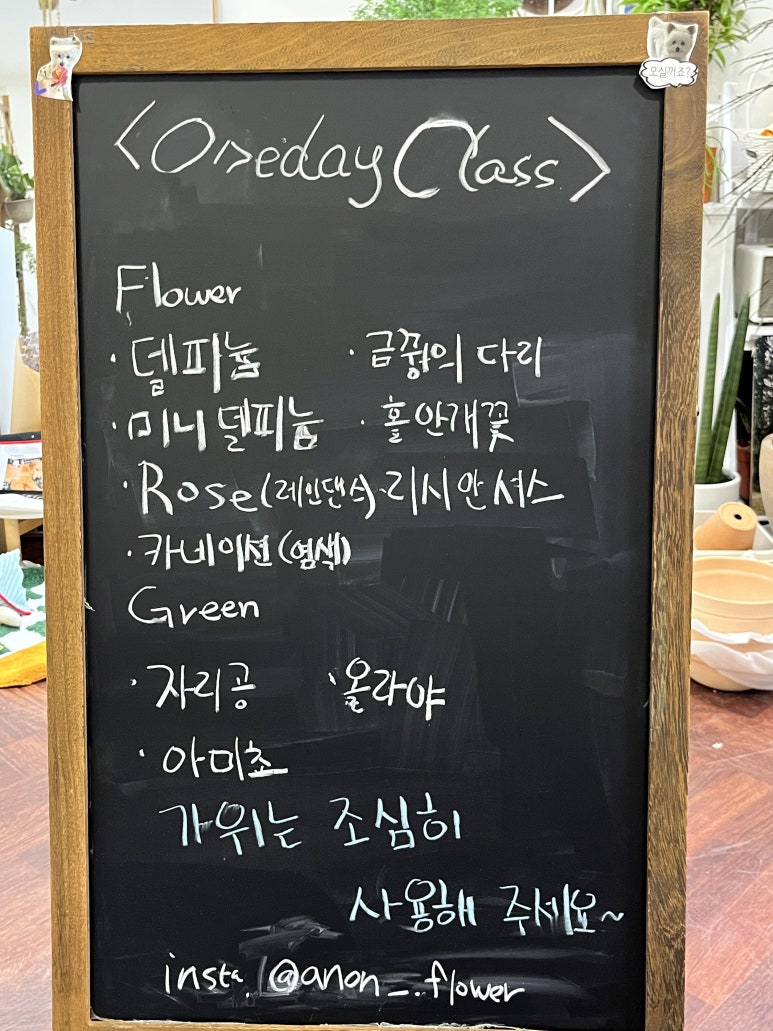 모실꺼죠?
<Oneday Class>
Flower
· 델피늄 · 금꿩의 다리
· 미니 델피늄 · 홀 안개꽃
· Rose (레인댄스) · 리시안셔스
· 카네이션 (염색)
Green
· 자리공 · 올라야
· 아미초
가위는 조심히
사용해 주세요~
insta. @anon_.flower